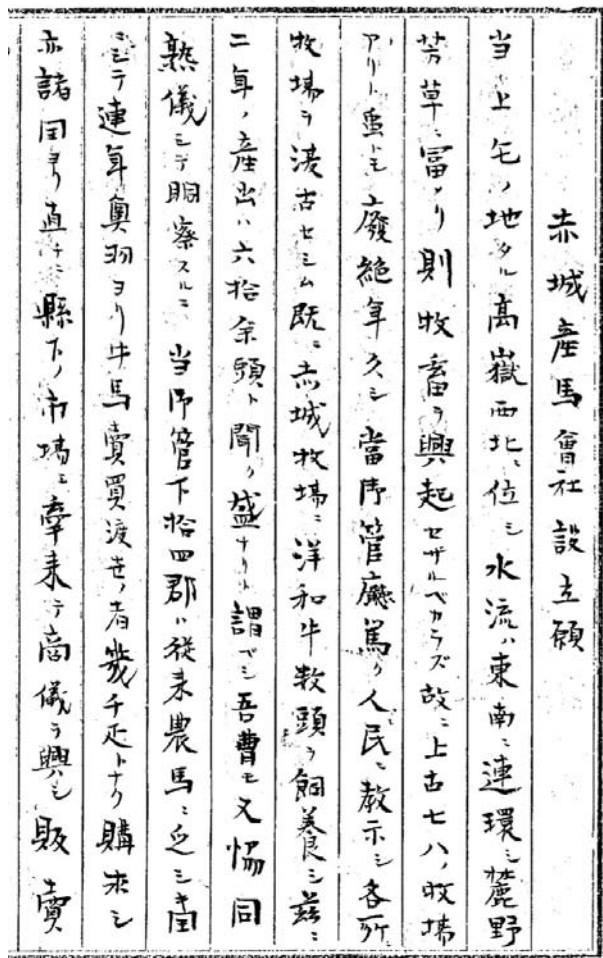 赤城產馬會社設立願
当上毛ノ地タル高嶽西北ニ位シ水流ハ東南ニ連環シ麓野
芳草ニ冨メリ則牧畜ヲ興起セザルベカラズ故ニ上古七八ノ牧場
アリト虽トモ廢絶年久シ當御管廳篤ク人民ニ教示シ各所
牧場ヲ復古セシム既ニ赤城牧場ニ洋和牛数頭ヲ飼養シ茲ニ
二年ノ產出ハ六拾余頭ト聞ク盛ナリト謂ベシ吾曹モ又恊同
熟儀シテ洞察スルニ当御管下拾四郡ハ従来農馬ニ乏シ
ニシテ連年奥羽ヨリ牛馬賣買渡世ノ者幾千疋トナク購求シ
亦諸国ヨリ直チニ縣下ノ市場ニ牽来テ商儀ヲ興シ販賣